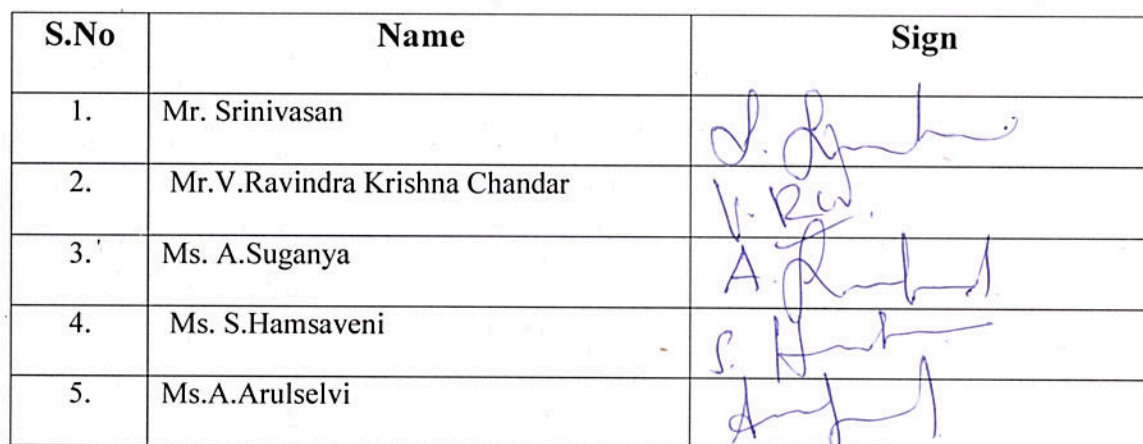 S.No Name Sign
1. Mr. Srinivasan
2. Mr.V.Ravindra Krishna Chandar V.
3. Ms. A.Suganya A.
4. Ms. S.Hamsaveni S.
5. Ms.A.Arulselvi